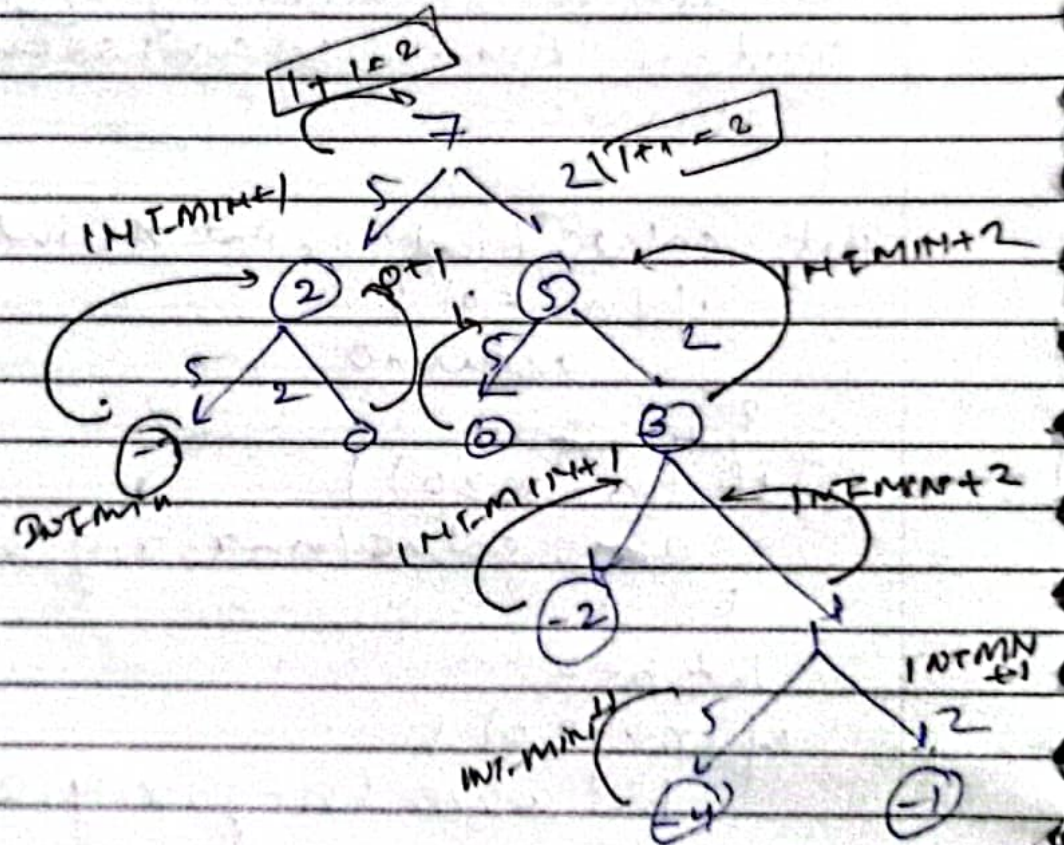 1+1=2
7
2(1+1=2
5
INT_MIN+1
2
0+1
5
INTMIN+2
1
5
2
5
2
-3
0
0
3
INT_MIN
INT_MIN+1
INTMIN+2
-2
1
INTMIN
+1
5
2
INT_MIN+1
-4
-1